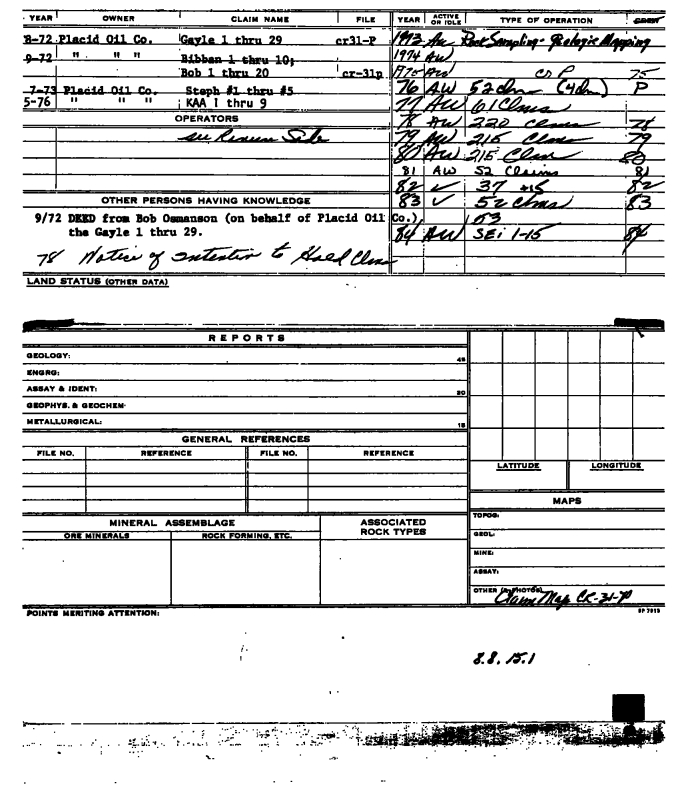 YEAR OWNER CLAIM NAME FILE YEAR ACTIVE OR IDLE TYPE OF OPERATION
8-72 Placid Oil Co. Gayle 1 thru 29 cr31-P 1973 AW Rock Sampling - Geologic Mapping
9-72 " " " Bibban 1 thru 10; 1974 AW
Bob 1 thru 20 cr-31p 1975 AW cr P 75
7-73 Placid Oil Co. Steph #1 thru #5 76 AW 52 clm (4 dm) P
5-76 " " " KAA 1 thru 9 77 AW 61 Clms
OPERATORS 78 AW 220 clms 78
see Reverse Side 79 AW 215 Clms 79
80 AW 215 Clms 80
81 AW 52 Claims 81
82 ✓ 37 82
OTHER PERSONS HAVING KNOWLEDGE 83 ✓ 52 clms 83
9/72 DEED from Bob Osmanson (on behalf of Placid Oil Co.), 53
the Gayle 1 thru 29. 84 AW SEi 1-15 84
78 Notice of intention to Hold Clms
LAND STATUS (OTHER DATA)
REPORTS
GEOLOGY: 45
ENGRG:
ASSAY & IDENT: 20
GEOPHYS. & GEOCHEM-
METALLURGICAL: 15
GENERAL REFERENCES
FILE NO. REFERENCE FILE NO. REFERENCE
LATITUDE LONGITUDE
MAPS
MINERAL ASSEMBLAGE ASSOCIATED ROCK TYPES TOPOG:
ORE MINERALS ROCK FORMING, ETC. GEOL:
MINE:
ASSAY:
OTHER (& PHOTOS) Claim Map CR-31-P
POINTS MERITING ATTENTION: SP 7913
8.8.15.1